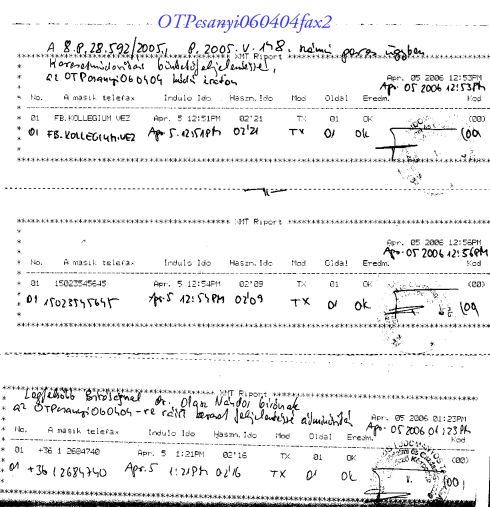 OTPcsanyi060404fax2
A 8.P.28.592/2005, P. 2005. V. 148. számú peres ügyben
XMT Riport
az OTPcsanyi060404 kódú iraton
Apr. 05 2006 12:53PM
Apr. 05 2006 12:53PM
No. A masik telefax Indulo Ido Haszn. Ido Mod Oldal Eredm. Kod
01 FB.KOLLEGIUM VEZ Apr. 5 12:51PM 02'21 TX 01 OK (00)
01 FB.KOLLEGIUM.VEZ Apr.5.12:51PM 02'21 TX 01 OK (00)
XMT Riport
Apr. 05 2006 12:56PM
Apr. 05 2006 12:56PM
No. A masik telefax Indulo Ido Haszn. Ido Mod Oldal Eredm. Kod
01 15023545645 Apr. 5 12:54PM 02'09 TX 01 OK (00)
01 15023545645 Apr.5 12:54PM 02'09 TX 01 OK (00
XMT Riport
Legfelsőbb Bíróságnál dr. Olasz Nándor bírónak
az OTPcsanyi060404-re
Apr. 05 2006 01:23PM
Apr 05 2006 01:23PM
No. A masik telefax Indulo Ido Haszn. Ido Mod Oldal Eredm. Kod
01 +36 1 2684740 Apr. 5 1:21PM 02'16 TX 01 OK (00)
01 +36 1 2684740 Apr.5 1:21PM 02'16 TX 01 OK V. (00)